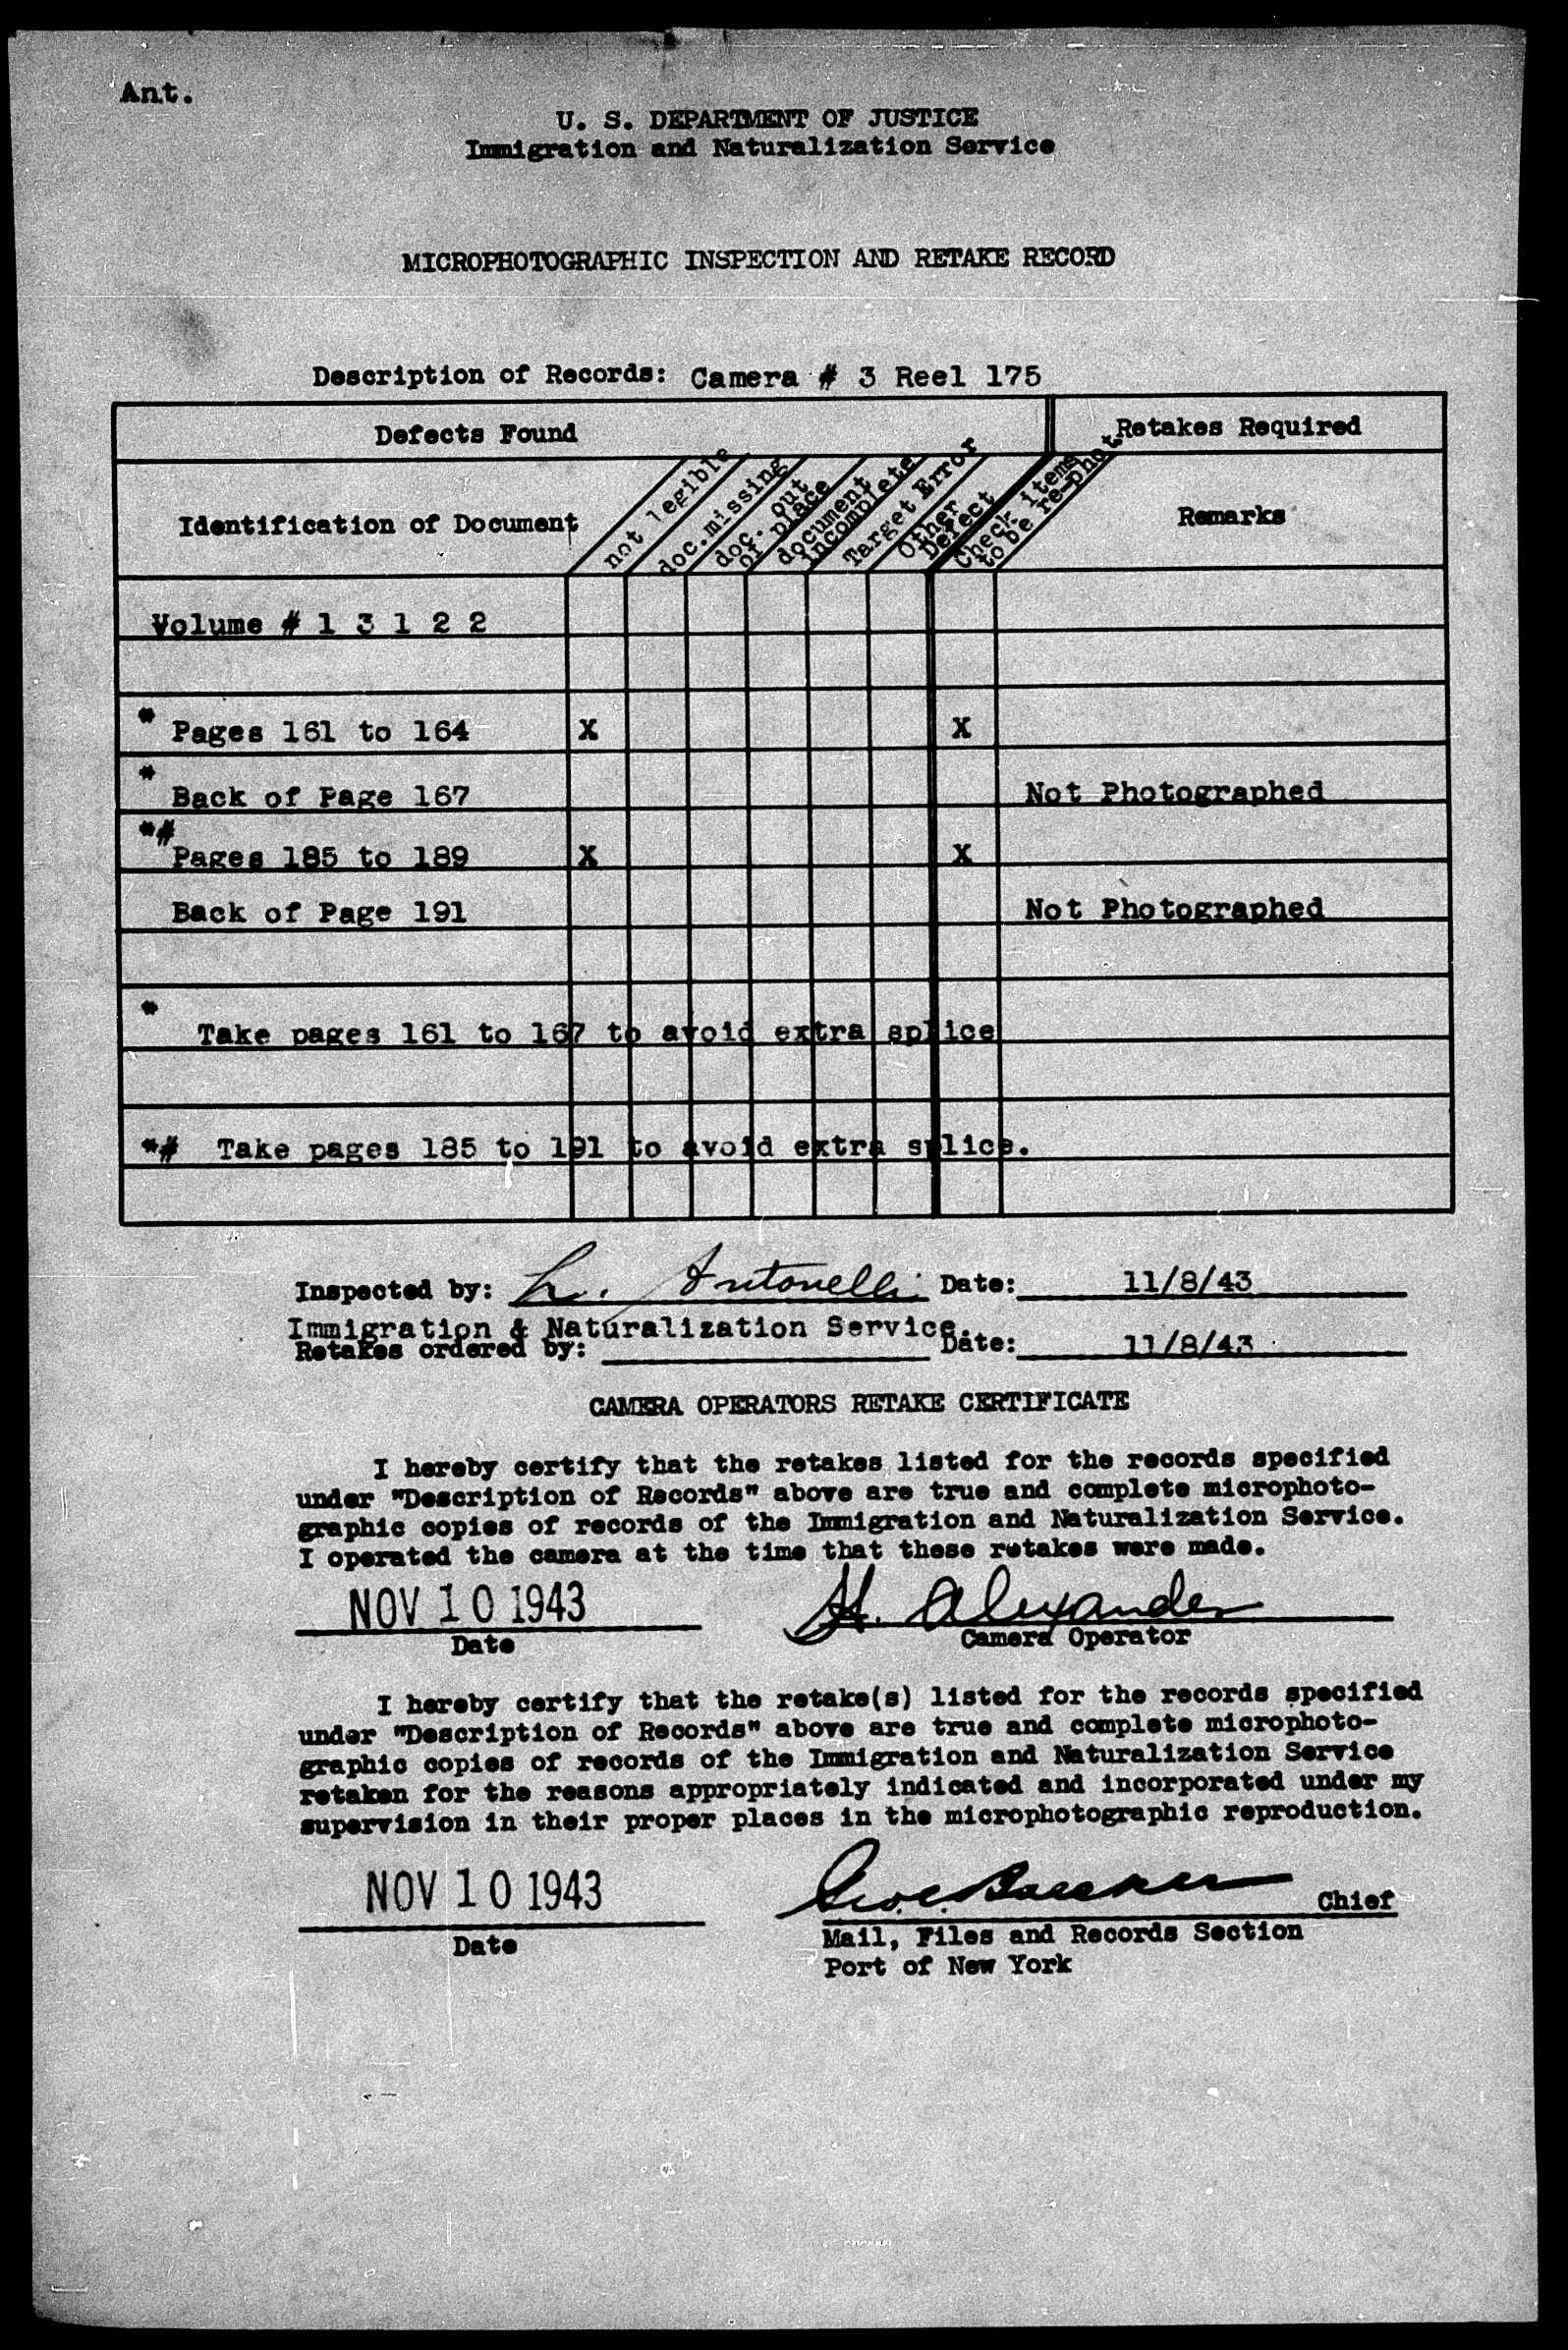 Ant.
U. S. DEPARTMENT OF JUSTICE
Immigration and Naturalization Service
MICROPHOTOGRAPHIC INSPECTION AND RETAKE RECORD
Description of Records: Camera # 3 Reel 175
Defects Found
Retakes Required
Identification of Document
not legible
doc.missing
doc. out of place
document incomplete
Target Error
Other Defect
Check items to be re-phot.
Remarks
Volume # 1 3 1 2 2
* Pages 161 to 164 X X
* Back of Page 167 Not Photographed
*# Pages 185 to 189 X X
Back of Page 191 Not Photographed
* Take pages 161 to 167 to avoid extra splice
*# Take pages 185 to 191 to avoid extra splice.
Inspected by: L. Antonelli Date: 11/8/43
Immigration & Naturalization Service.
Retakes ordered by: Date: 11/8/43
CAMERA OPERATORS RETAKE CERTIFICATE
I hereby certify that the retakes listed for the records specified
under "Description of Records" above are true and complete microphoto-
graphic copies of records of the Immigration and Naturalization Service.
I operated the camera at the time that these retakes were made.
NOV 10 1943 H. Alexander
Date Camera Operator
I hereby certify that the retake(s) listed for the records specified
under "Description of Records" above are true and complete microphoto-
graphic copies of records of the Immigration and Naturalization Service
retaken for the reasons appropriately indicated and incorporated under my
supervision in their proper places in the microphotographic reproduction.
NOV 10 1943 Chief
Date Mail, Files and Records Section
Port of New York